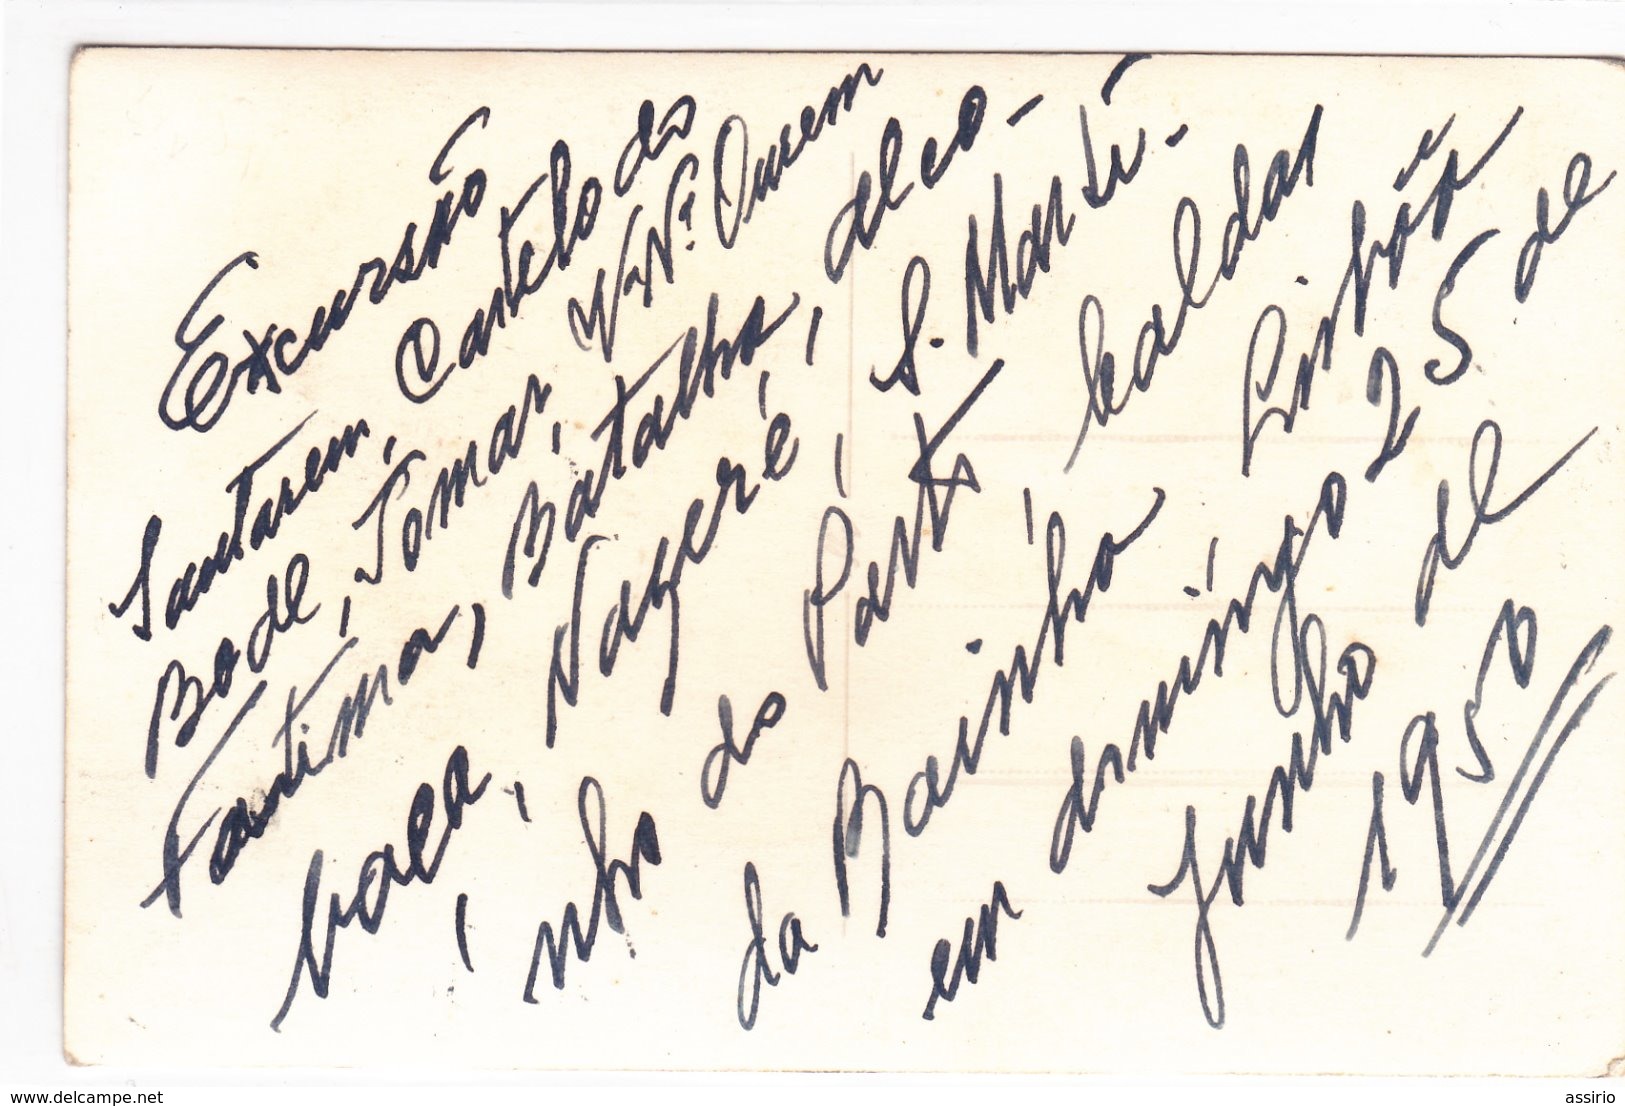 Excursão
Santarem, Castelo do
Bode, Tomar, V. Nª. Ourem
Fatima, Batalha, Alco-
baça, Nazaré, S. Marti-
nho do Porto, Caldas
da Rainha Lisbôa
em domingo 25 de
Junho de
1950
www.delcampe.net
assirio